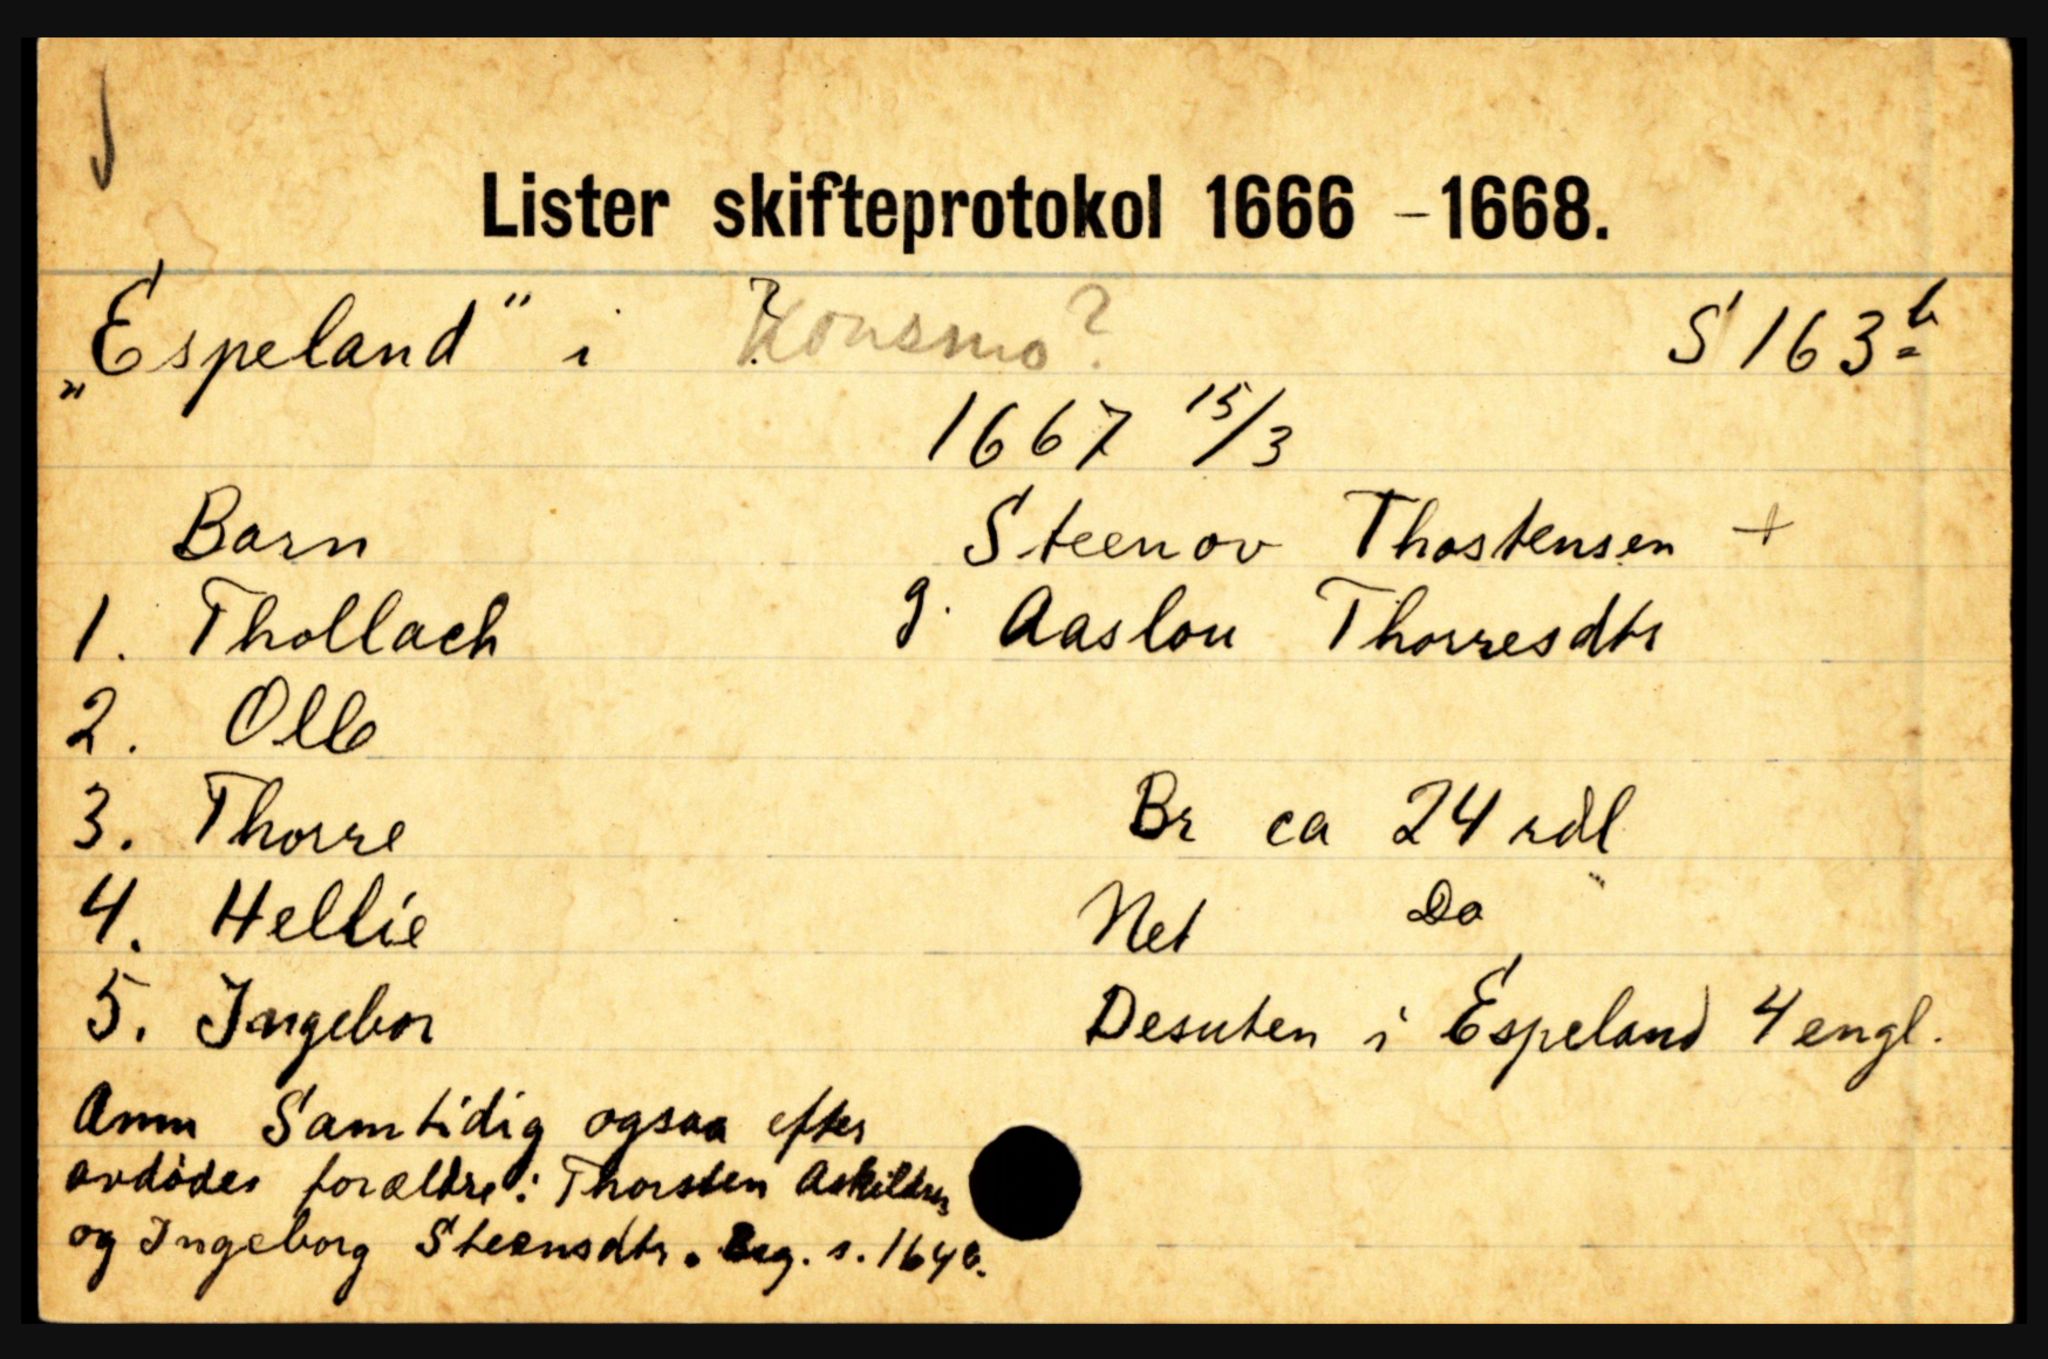 Lister skifteprotokol 1666 – 1668.
„Espeland" i ? Konsmo? S 163 b
1667 15/3
Barn Steenov Thostensen +
1. Thollach g. Aaslou Thorresdtr
2. Olle
3. Thorre Br ca 24 rdl
4. Hellie Net Do "
5. Ingebor Desuten i Espeland 4 engl.
Anm Samtidig ogsaa efter
avdødes forældre: Thorsten Askildsen
og Ingeborg Steensdtr. s. 164